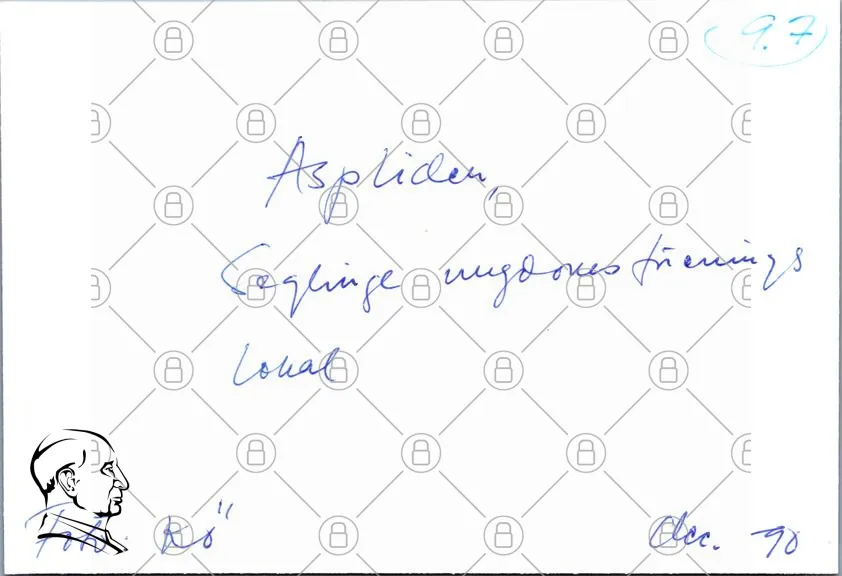 9.7
Aspliden,
Seglinge ungdomsförenings
lokal
Foto KÖ
dec. 90